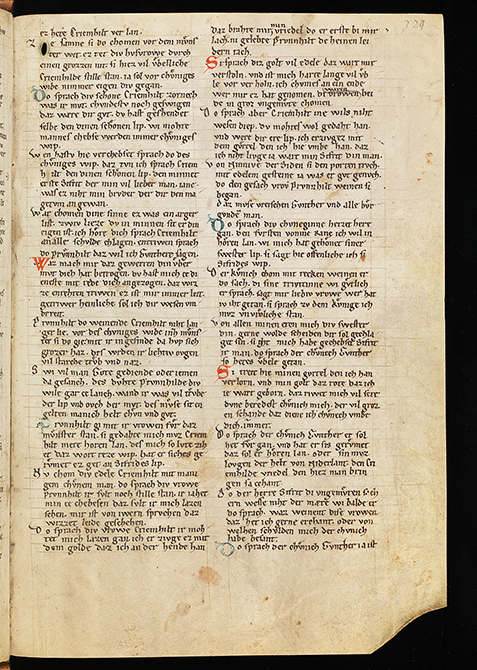 329
ez here Criemhilt ver lan.
Ze samne si do chomen vor dem mvns
ter wit. ez tet div hvsvrowe dvrch
einen grozzen nit. si hiez vil vbelliche
Criemhilde stille stan. ia sol vor chvniges
wibe nimmer eigen div gegan.
Do sprach div schone Criemhilt zornech
was ir mvt. chvndestv noch geswigen
daz ware dir gvt. dv hast geschendet
selbe den dinen schonen lip. wi mohte
mannes chebse werden immer chvniges
wip.
Wen hastv hie verchebset sprach do des
chvniges wip. daz tvn ich sprach Criem
hilt den dinen schonen lip. den minnet
erste Sifrit der min vil lieber man. iane
was ez niht min brvder der dir den ma
getvm an gewan.
War chomen dine sinne ez was ein arger
list. zwiv liezze dv in minnen sit er din
eigen ist. ich hore dich sprach Criemhilt
an alle schvlde chlagen. entriwen sprach
do Prvnhilt daz wil ich Gvnther sagen.
Waz mach mir daz gewerren din vber
mvt dich hat betrogen. dv hast mich ze di
enste mit rede dich angezogen. daz wiz
ze in rehten triwen ez ist mir immer leit.
getriwer heinliche sol ich dir wesen vn
bereit.
Prvnhilt do weinde Criemhilt niht lan
ger lie. vor des chvniges wibe inz mvns
ter si do gie. mit ir gesinde da hvp sich
grozer haz. des wrden liehtiv ovgen
vil starche trvb vnd naz.
Swi vil man Gote gediende oder iemen
da gesanch. des dvhte Prvnhilde div
wile gar ze lanch. wand ir was vil trvbe
der lip vnd ovch der mvt. des mvse sit en
gelten manich helt chvn vnd gvt.
Prvnhilt gi mit ir vrowen fvr daz
mvnster stan. si gedahte mich mvz Criem
hilt mere horen lan. des mich so lvte zih
et daz wort ræze wip. hat er siches ge
rvmet ez get an Sifrides lip.
Nv chom div edele Criemhilt mit mani
gem chvnen man. do sprach div vrowe
Prvnhilt ir svlt noch stille stan. ir iahet
min ze chebesen daz svlt ir mich lazen
sehen. mir ist von iwern sprvchen daz
wizzet leide geschehen.
Do sprach div vrowe Criemhilt ir moh
tet mich lazen gan. ich erzivge ez mit
dem golde daz ich an der hende han
daz brahte mir min vriedel do er erste bi mir
lach. ni gelebte Prvnnhilt deheinen lei
dern tach.
Si sprach diz golt vil edele daz wart mir
verstoln. vnd ist mich harte lange vil vb
ele vor verholn. ich chvmes an ein ende
wer mir ez hat genomen. di vrowen bei
de in groz vngemvte chomen.
Do sprach aber Criemhilt ine wils niht
wesen diep. dv mohtes wol gedaht han
vnd were dir ere lip. ich erzivgez mit
dem gvrtel den ich hie vmbe han. daz
ich niht livge ia wart min Sifrit din man.
Von Ninnive der siden si den porten trvch.
mit edelem gesteine ia was er gvt genvch.
do den gesach vrov Prvnhilt weinen si
began.
daz mvze vreischen Gvnther vnd alle bvr
gonde man.
Do sprach div chvniginne heizet here
gan. den fvrsten vonme Rine ich wil in
horen lan. wi mich hat gehonet siner
swester lip. si sagt hie offenliche ich si
Sifrides wip.
Der kvnich chom mit recken weinen er
do sach. di sine trivtinne wi gvtlich
er sprach. sagt mir liebiv vrowe wer hat
iv iht getan. si sprach zv dem kvnige ich
mvz vnvroliche stan.
Von allen minen eren mich div swester
din. gerne wolde scheiden dir sol geclagt
sin. si giht mich habe gechebset Sifrit
ir man. do sprach der chvnech Gvnther
so hetes vbele getan.
Si treit hie minen gvrtel den ich han
verlorn. vnd min golt daz rote daz ich
ie wart geborn. daz riwet mich vil sere
dvne beredest chvnich mich. der vil groz
en schande daz diene ich chvnech vmbe
dich immer.
Do sprach der chvnich Gvnther er sol
her fvr gan. vnd hat er sis gervmet
daz sol er horen lan. oder sin mvz
lovgen der helt von Niderlant. den Cri
emhilde vriedel den hiez man brin
gen sa cehant.
Do der herre Sifrit di vngemvten gesach
ern wesse niht der mære wi balde er
do sprach. waz weinent dise vrowen
daz het ich gerne erchant. oder von
welhen schvlden mich der chvnich
habe besant.
Do sprach der chvnich Gvnther ia ist